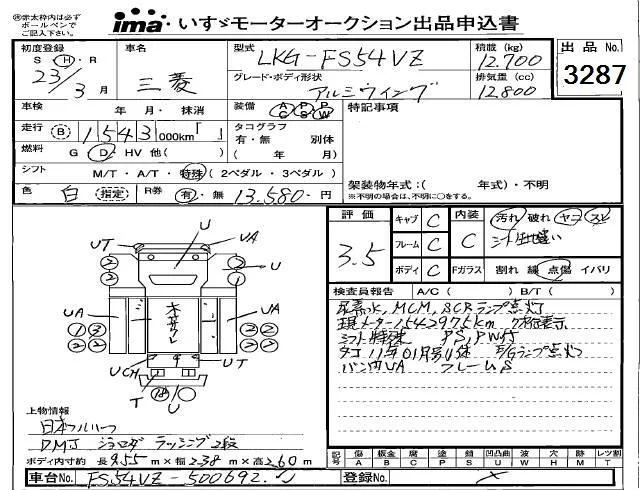 ※赤太枠内は必ず
ボールペンで
ご記入下さい。
ima いすゞモーターオークション出品申込書
初度登録 車名 型式 LKG-FS54VZ 積載 (kg) 12.700 出品 No.
S H・R 23/3 月 三菱 グレード・ボディ形状 アルミウイング 排気量 (cc) 12800 3287
車検 年・月・抹消 装備 AC PS PW 特記事項
走行 B 1543 000km「 」 タコグラフ
有・無 別体
燃料 G・D・HV 他( ) ( 年 月)
シフト M/T・A/T・特殊 (2ペダル・3ペダル)
架装物年式:( 年式)・不明
色 白 (指定) R券 有・無 13.580-円 ※不明の場合は、不明に○をする。
評価 3.5 キャブ C 内装 C 汚れ 破れ ヤコ スレ
フレーム C シート
ボディ C Fガラス 割れ 線 点傷 イバリ
検査員報告 A/C ( ) B/T ( )
尿素水, MCM, SCRランプ点灯
現メーター 154297.5km
シフト特殊 PS, PW付
タコ 11年01月 E/Gランプ点灯
バン内UA フレームS
U
UT UA
2 2 U
2 2
UA UA
木 サクレ
1 3 2 2
2 2 2 2
UCH UT
T U
上物情報
日本フルハーフ
DMJ ジョロダ ラッシング2段
ボディ内寸約 長 9.55 m×幅 2.38 m×高 2.60 m
記号 傷 A 板金 B 腐 C 塗 P 錆 S 凹凸曲 U 波 W 穴 H 跡 M 無 T レツ割
車台No. FS54VZ-500692. 登録No.